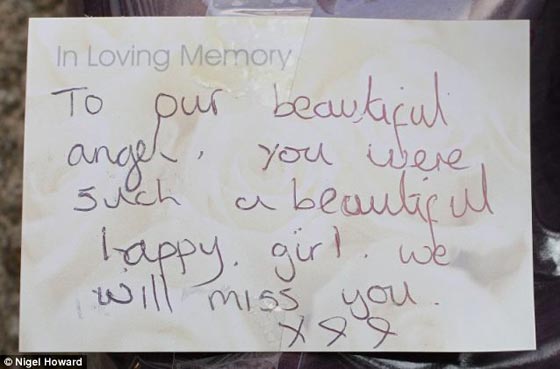 In Loving Memory
To our beautiful
angel, you were
such a beautiful
happy, girl. we
will miss you.
xxx
© Nigel Howard